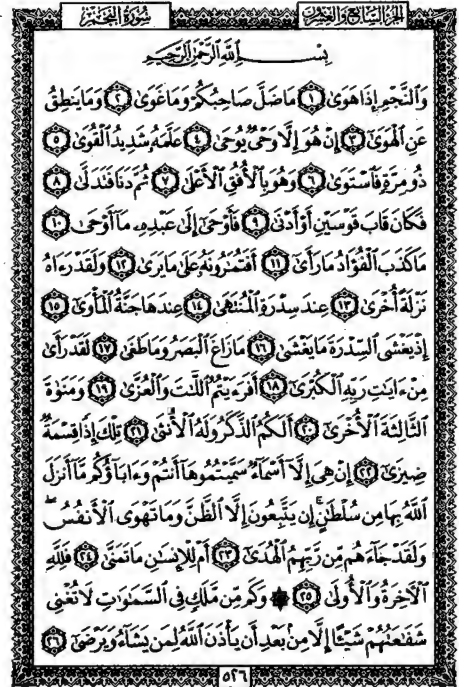 الجزء السابع والعشرون سورة النجم
بِسْمِ ٱللَّهِ ٱلرَّحْمَٰنِ ٱلرَّحِيمِ
وَٱلنَّجْمِ إِذَا هَوَىٰ ١ مَا ضَلَّ صَاحِبُكُمْ وَمَا غَوَىٰ ٢ وَمَا يَنطِقُ
عَنِ ٱلْهَوَىٰ ٣ إِنْ هُوَ إِلَّا وَحْىٌ يُوحَىٰ ٤ عَلَّمَهُۥ شَدِيدُ ٱلْقُوَىٰ ٥
ذُو مِرَّةٍ فَٱسْتَوَىٰ ٦ وَهُوَ بِٱلْأُفُقِ ٱلْأَعْلَىٰ ٧ ثُمَّ دَنَا فَتَدَلَّىٰ ٨
فَكَانَ قَابَ قَوْسَيْنِ أَوْ أَدْنَىٰ ٩ فَأَوْحَىٰٓ إِلَىٰ عَبْدِهِۦ مَآ أَوْحَىٰ ١٠
مَا كَذَبَ ٱلْفُؤَادُ مَا رَأَىٰٓ ١١ أَفَتُمَٰرُونَهُۥ عَلَىٰ مَا يَرَىٰ ١٢ وَلَقَدْ رَءَاهُ
نَزْلَةً أُخْرَىٰ ١٣ عِندَ سِدْرَةِ ٱلْمُنتَهَىٰ ١٤ عِندَهَا جَنَّةُ ٱلْمَأْوَىٰٓ ١٥
إِذْ يَغْشَى ٱلسِّدْرَةَ مَا يَغْشَىٰ ١٦ مَا زَاغَ ٱلْبَصَرُ وَمَا طَغَىٰ ١٧ لَقَدْ رَأَىٰ
مِنْ ءَايَٰتِ رَبِّهِ ٱلْكُبْرَىٰٓ ١٨ أَفَرَءَيْتُمُ ٱللَّٰتَ وَٱلْعُزَّىٰ ١٩ وَمَنَوٰةَ
ٱلثَّالِثَةَ ٱلْأُخْرَىٰٓ ٢٠ أَلَكُمُ ٱلذَّكَرُ وَلَهُ ٱلْأُنثَىٰ ٢١ تِلْكَ إِذًا قِسْمَةٌ
ضِيزَىٰٓ ٢٢ إِنْ هِىَ إِلَّآ أَسْمَآءٌ سَمَّيْتُمُوهَآ أَنتُمْ وَءَابَآؤُكُم مَّآ أَنزَلَ
ٱللَّهُ بِهَا مِن سُلْطَٰنٍ ۚ إِن يَتَّبِعُونَ إِلَّا ٱلظَّنَّ وَمَا تَهْوَى ٱلْأَنفُسُ ۖ
وَلَقَدْ جَآءَهُم مِّن رَّبِّهِمُ ٱلْهُدَىٰٓ ٢٣ أَمْ لِلْإِنسَٰنِ مَا تَمَنَّىٰ ٢٤ فَلِلَّهِ
ٱلْءَاخِرَةُ وَٱلْأُولَىٰ ٢٥ ۞ وَكَم مِّن مَّلَكٍ فِى ٱلسَّمَٰوَٰتِ لَا تُغْنِى
شَفَٰعَتُهُمْ شَيْـًٔا إِلَّا مِنۢ بَعْدِ أَن يَأْذَنَ ٱللَّهُ لِمَن يَشَآءُ وَيَرْضَىٰٓ ٢٦
٥٢٦